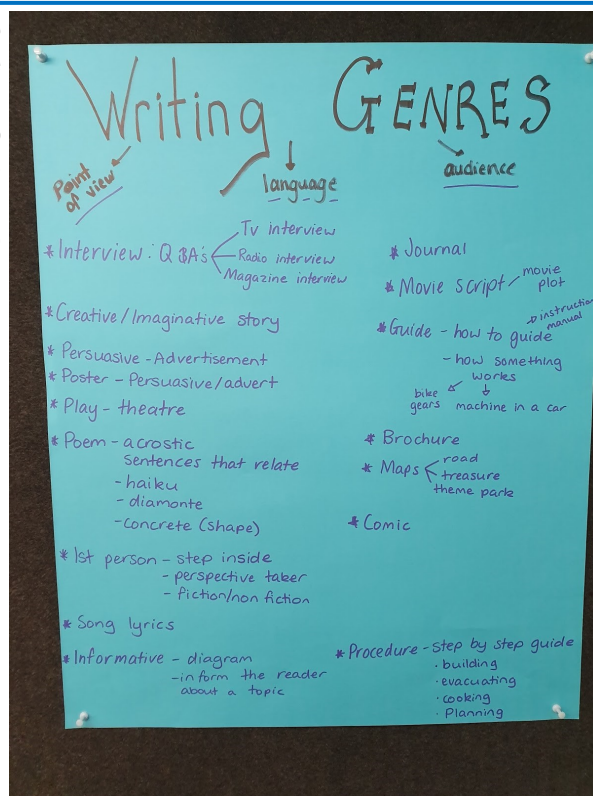 Writing GENRES
Point
of view
language
audience
* Interview: Q &A's
Tv interview
Radio interview
Magazine interview
* Creative/Imaginative story
* Persuasive - Advertisement
* Poster - Persuasive/advert
* Play - theatre
* Poem - acrostic
Sentences that relate
- haiku
- diamonte
- concrete (shape)
* 1st person - step inside
- perspective taker
- fiction/non fiction
* Song lyrics
* Informative - diagram
- inform the reader
about a topic
* Journal
* Movie script
movie
plot
* Guide - how to guide
instruction
manual
- how something
works
bike
gears
machine in a car
* Brochure
* Maps
road
treasure
theme park
* Comic
* Procedure - step by step guide
· building
· evacuating
· cooking
· Planning